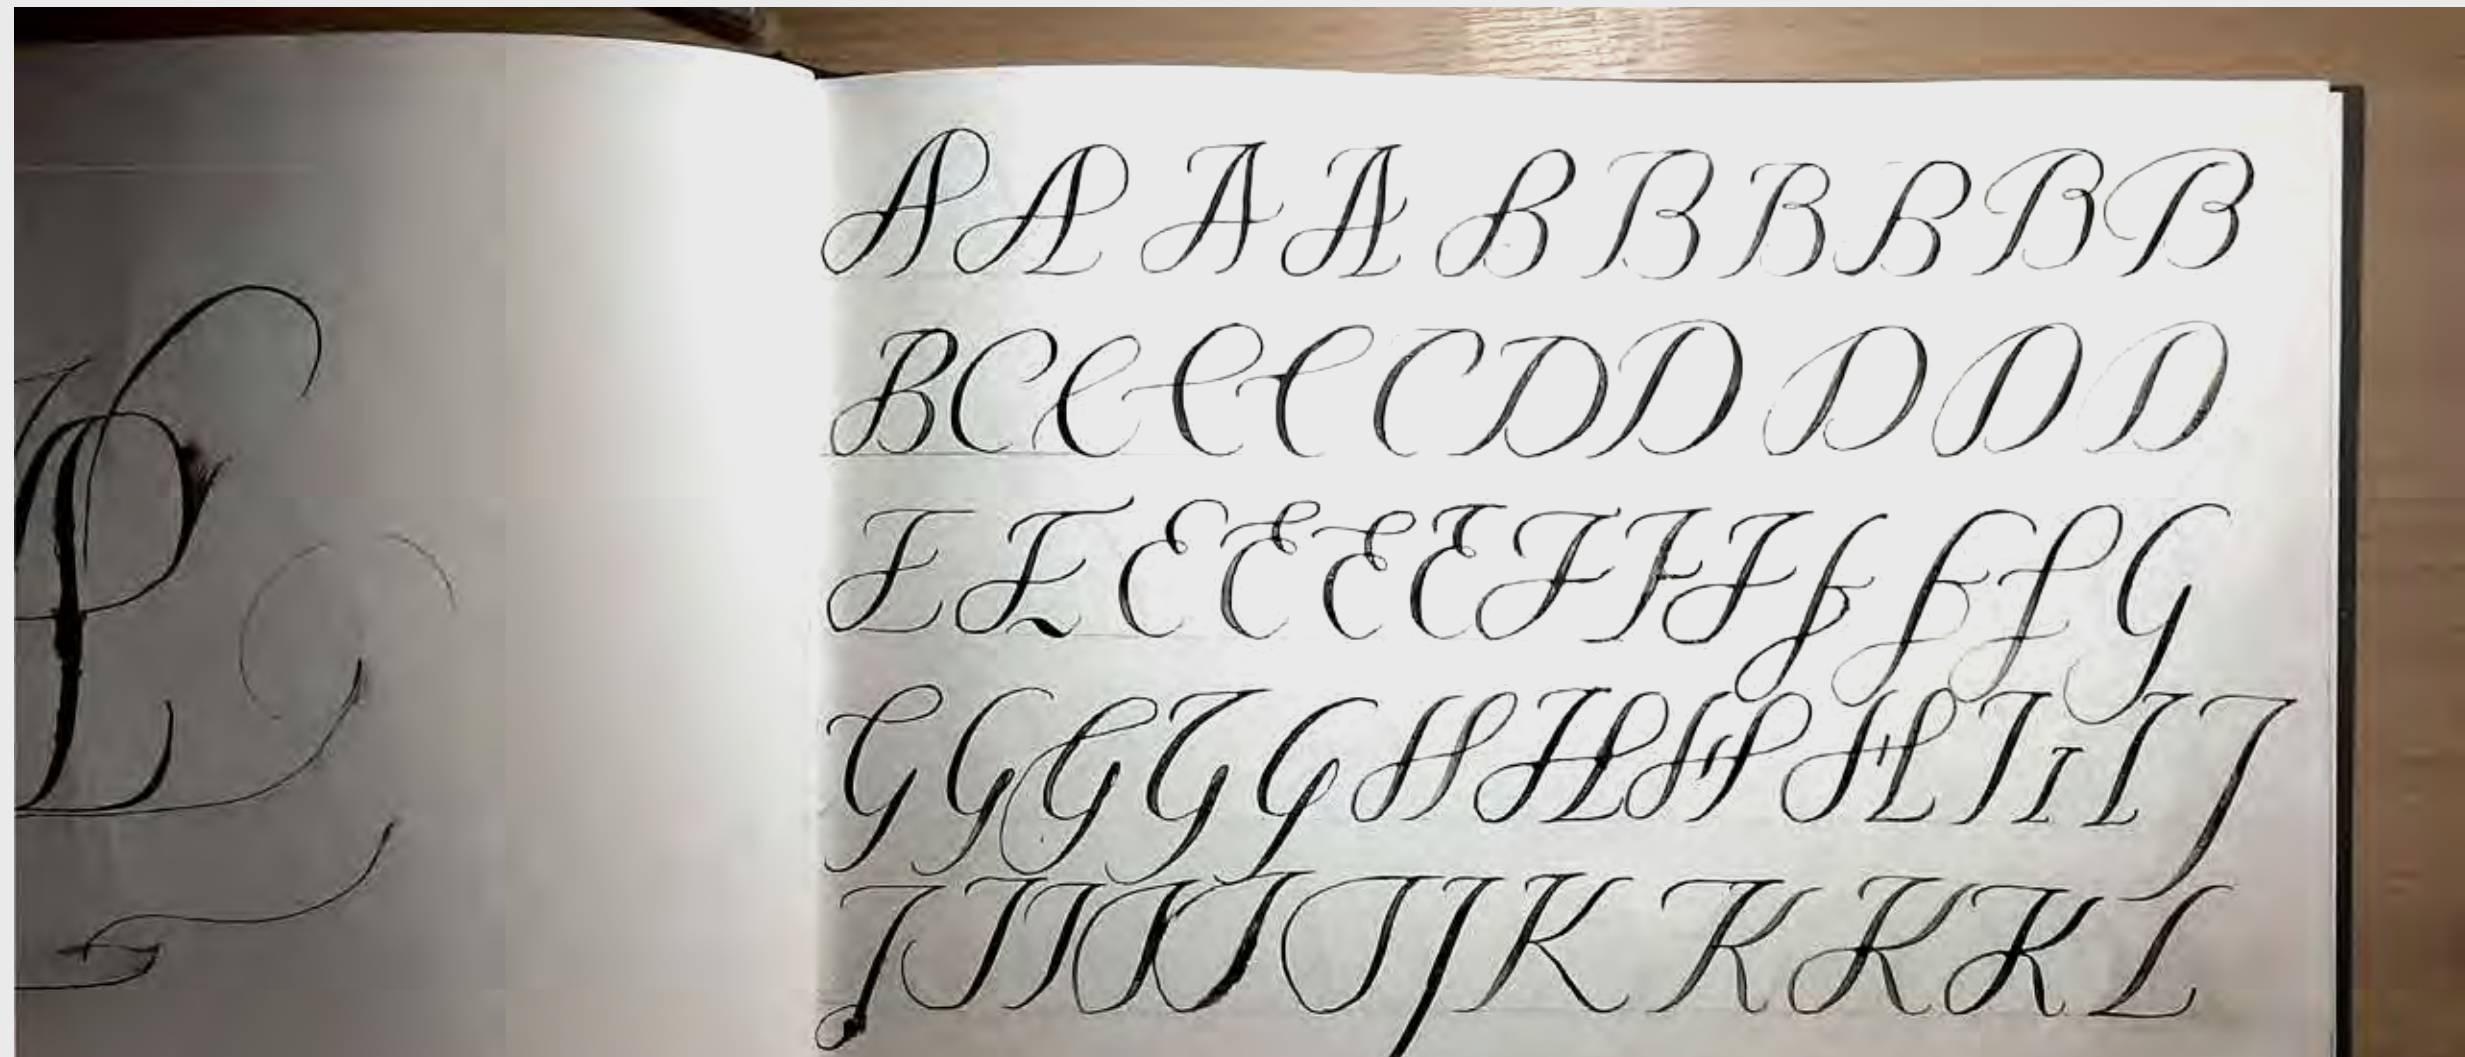 A A A A B B B B B B
B C C C C C D D D D D
E E E E E E F F F F F F G
G G G G G H H H H I I I J
J J J J J J J K K K K L